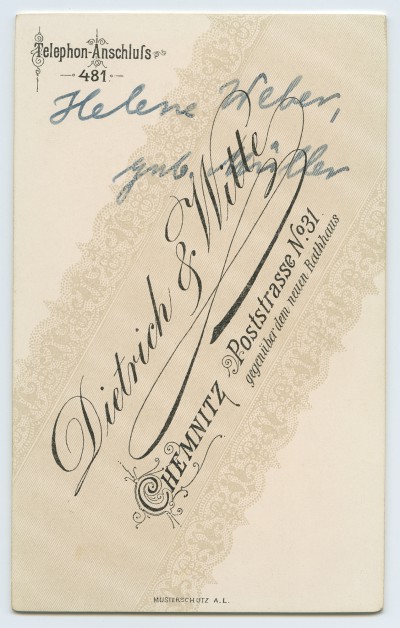 Telephon-Anschluſs
481.
Helene Weber,
geb. Müller
Dietrich & Witte
CHEMNITZ Poststrasse No. 31
gegenüber dem neuen Rathhaus
MUSTERSCHUTZ A. L.